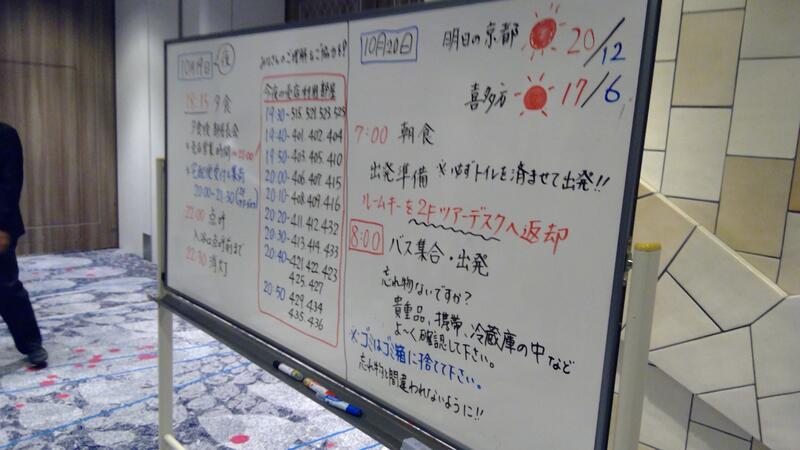 10月19日 夜
みなさんのご理解とご協力を!!
18:15 夕食
夕食後 部班長会
売店営業時間〜22:00
20:00〜21:30
22:00 点呼
22:30 消灯
今夜の売店利用部屋
19:30〜515.521.523.525
19:40〜401.402.404
19:50〜403.405.410
20:00〜406.407.415
20:10〜408.409.416
20:20〜411.412.432
20:30〜413.414.433
20:40〜421.422.423
425.427
20:50 429.434
435.436
10月20日
明日の京都 20/12
喜多方 17/6
7:00 朝食
出発準備 ※必ずトイレを済ませて出発!!
ルームキーを2Fツアーデスクへ返却
8:00 バス集合・出発
忘れ物ないですか?
貴重品、携帯、冷蔵庫の中など
よ〜く確認して下さい。
※ゴミはゴミ箱に捨てて下さい。
忘れ物と間違われないように!!